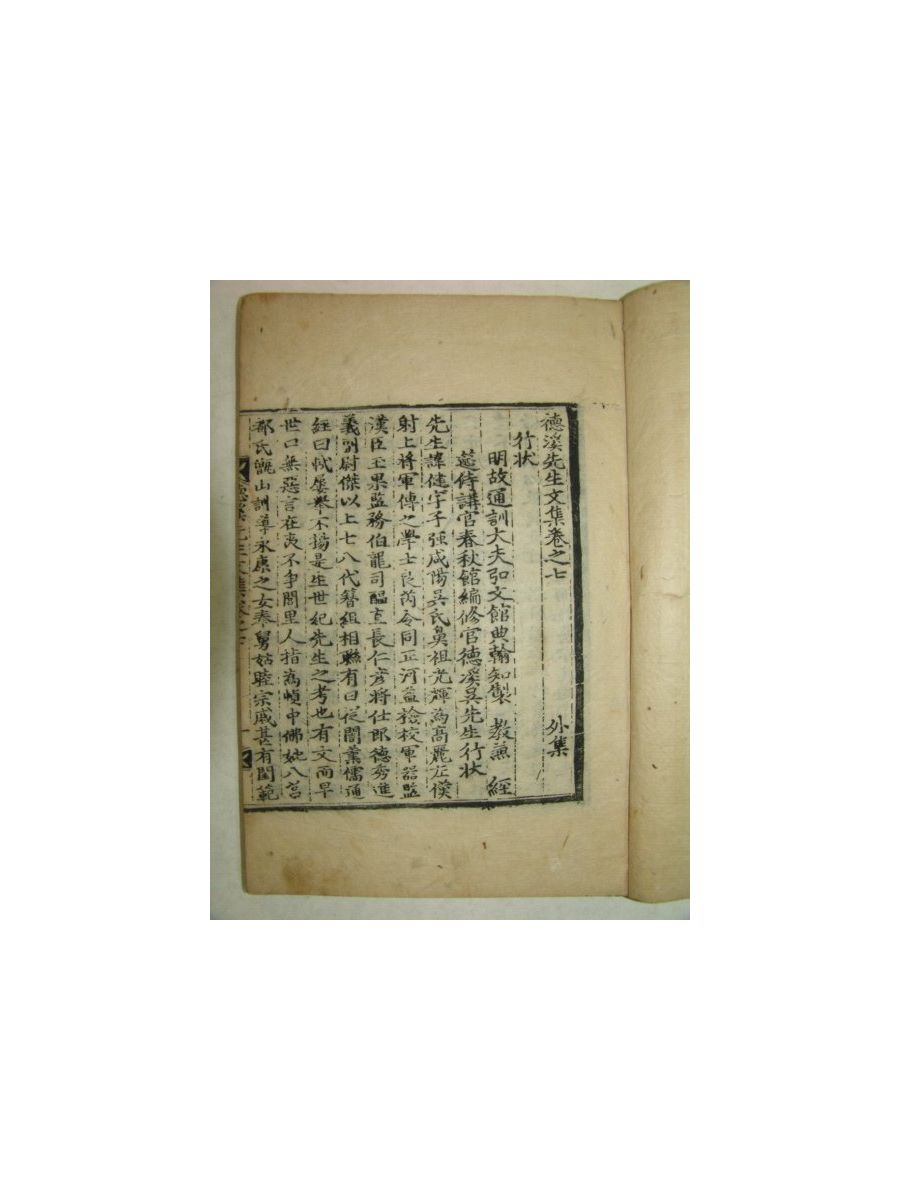 德溪先生文集卷之七 外集
行狀
明故通訓大夫弘文館典翰知製 敎兼 經
筵侍講官春秋館編修官德溪吳先生行狀
先生諱健字子强咸陽吳氏鼻祖光輝為高麗左僕
射上將軍傳之學士良芮令同正河益檢校軍器監
漢臣玉果監務伯龍司醞直長仁彦將仕郎德秀進
義副尉傑以上七八代簪組相聯有曰從誾業儒通
經曰軾屢擧不揚是生世紀先生之考也有文而早
世口無惡言在衆不争閭里人指為幀中佛妣八莒
都氏 山訓導永康之女奉舅姑睦宗戚甚有閨範
德溪先生文集卷之七 一